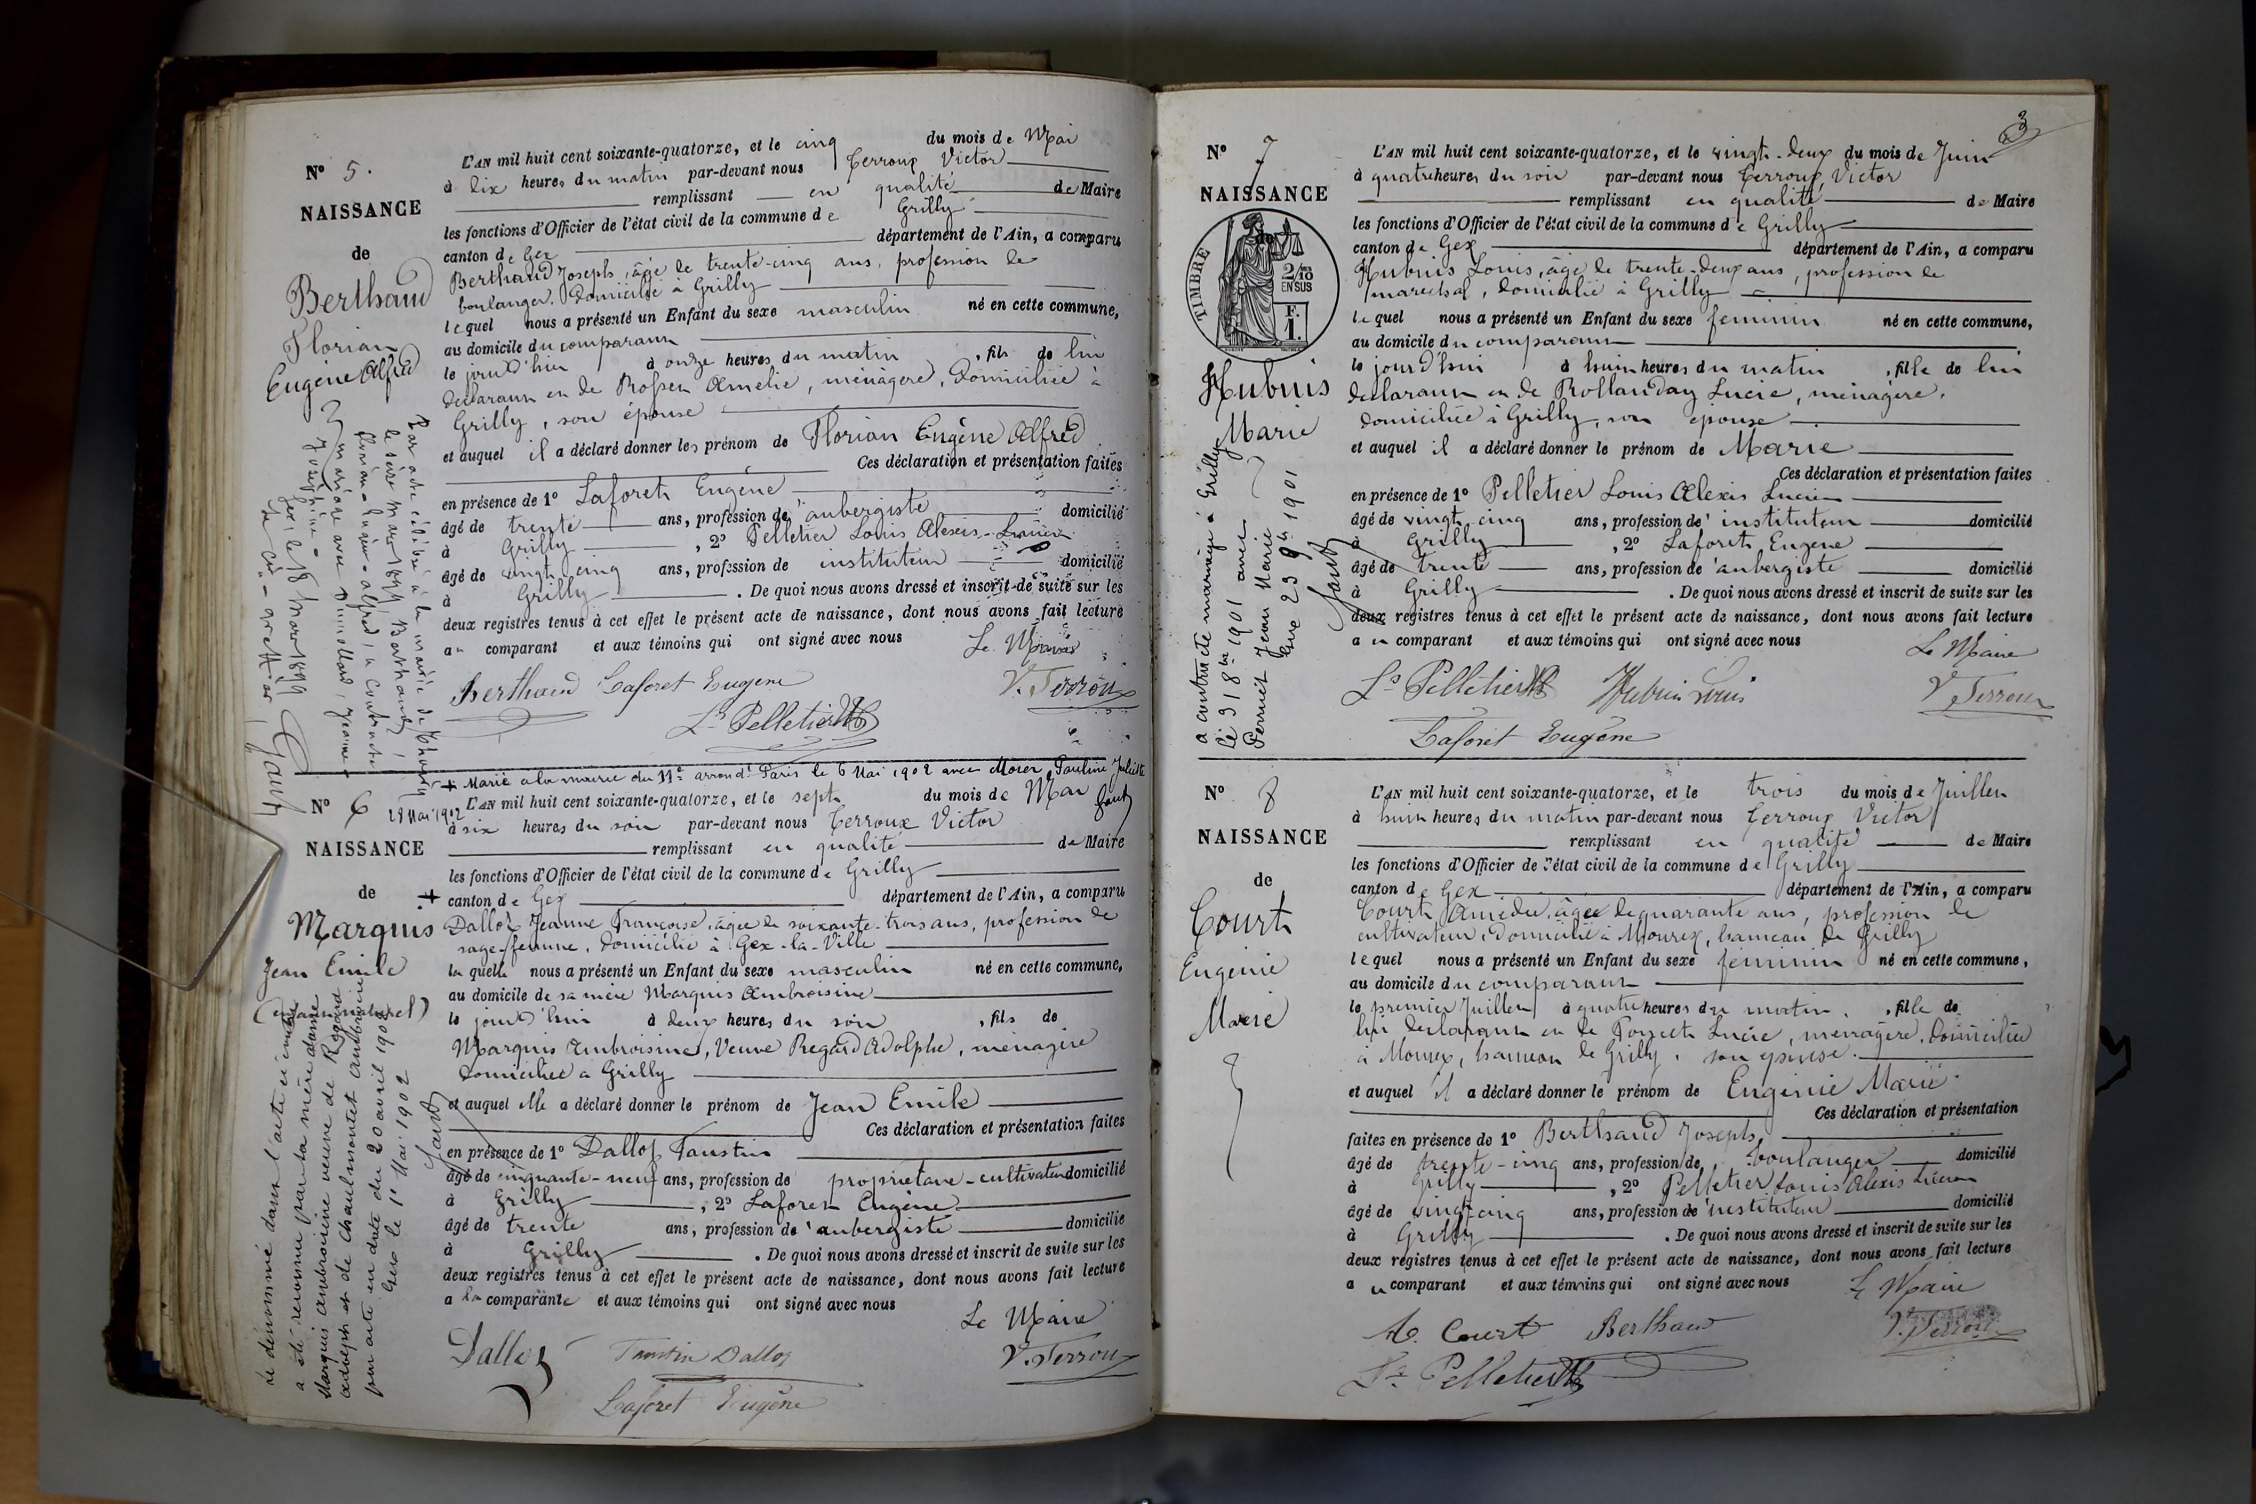 N° 5.
NAISSANCE
de
Berthaud
Florian
Eugène Alfred
L'AN mil huit cent soixante-quatorze, et le cinq du mois de Mai
à dix heures du matin par-devant nous Terroux Victor
remplissant en qualité de Maire
les fonctions d'Officier de l'état civil de la commune de Grilly
canton de Gex département de l'Ain, a comparu
Berthaud Joseph, âgé de trente-cinq ans, profession de
boulanger, domicilié à Grilly
lequel nous a présenté un Enfant du sexe masculin né en cette commune,
au domicile du comparant
le jour d'hier à onze heures du matin, fils de lui
déclarant et de Amélie, ménagère, domiciliée à
Grilly, son épouse
et auquel il a déclaré donner les prénom de Florian Eugène Alfred
Ces déclaration et présentation faites
en présence de 1° Laforet Eugène
âgé de trente ans, profession de aubergiste domicilié
à Grilly, 2° Pelletier Louis Alexis Lucien
âgé de vingt cinq ans, profession de instituteur domicilié
à Grilly. De quoi nous avons dressé et inscrit de suite sur les
deux registres tenus à cet effet le présent acte de naissance, dont nous avons fait lecture
au comparant et aux témoins qui ont signé avec nous
Le Maire
Berthaud Laforet Eugène V. Terroux
Ls Pelletier
Par acte célébré à la mairie de
le seize mars 1899 Berthaud,
florian-Eugène-alfred, a contracté
mariage avec
Joséphine-
Gex, le 18 Mars 1899
Le Greffier,
+ Marié à la mairie du 11e arrondt Paris le 6 Mai 1902 avec Moser, Pauline Juliette
28 Mai 1902
N° 6
NAISSANCE
de
Marquis
Jean Emile
(enfant naturel)
L'AN mil huit cent soixante-quatorze, et le sept du mois de Mai
à six heures du soir par-devant nous Terroux Victor
remplissant en qualité de Maire
les fonctions d'Officier de l'état civil de la commune de Grilly
+ canton de Gex département de l'Ain, a comparu
Dalloz Jeanne Françoise, âgée de soixante-trois ans, profession de
sage-femme, domicilié à Gex-la-Ville
laquelle nous a présenté un Enfant du sexe masculin né en cette commune,
au domicile de sa mère Marquis Ambroisine
le jour d'hui à deux heures du soir, fils de
Marquis Ambroisine, Veuve Regard Adolphe, ménagère
domiciliée à Grilly
et auquel elle a déclaré donner le prénom de Jean Emile
Ces déclaration et présentation faites
en présence de 1° Dalloz Faustin
âgé de cinquante-neuf ans, profession de propriétaire-cultivateur domicilié
à Grilly, 2° Laforet Eugène
âgé de trente ans, profession de aubergiste domicilié
à Grilly. De quoi nous avons dressé et inscrit de suite sur les
deux registres tenus à cet effet le présent acte de naissance, dont nous avons fait lecture
a la comparante et aux témoins qui ont signé avec nous
Le Maire
Dalloz Faustin Dalloz V. Terroux
Laforet Eugène
Le dénommé dans l'acte ci contre
a été reconnu par sa mère dame
Marquis Ambroisine veuve de Regard
Adolphe et de Chaulmontet Ambroisine
par acte en date du 20 avril 1902
Gex le 1er Mai 1902
3
N° 7
NAISSANCE
de
TIMBRE
2/10
EN SUS
F.
1.
Hubnis
Marie
L'AN mil huit cent soixante-quatorze, et le vingt-deux du mois de Juin
à quatre heures du soir par-devant nous Terroux Victor
remplissant en qualité de Maire
les fonctions d'Officier de l'état civil de la commune de Grilly
canton de Gex département de l'Ain, a comparu
Hubnis Louis, âgé de trente-deux ans, profession de
maréchal, domicilié à Grilly
lequel nous a présenté un Enfant du sexe féminin né en cette commune,
au domicile du comparant
le jour d'hui à huit heures du matin, fille de lui
déclarant et de Lucie, ménagère,
domiciliée à Grilly, son épouse
et auquel il a déclaré donner le prénom de Marie
Ces déclaration et présentation faites
en présence de 1° Pelletier Louis Alexis Lucien
âgé de vingt cinq ans, profession de instituteur domicilié
à Grilly, 2° Laforet Eugène
âgé de trente ans, profession de aubergiste domicilié
à Grilly. De quoi nous avons dressé et inscrit de suite sur les
deux registres tenus à cet effet le présent acte de naissance, dont nous avons fait lecture
au comparant et aux témoins qui ont signé avec nous
Le Maire
Ls Pelletier Hubnis Louis V. Terroux
Laforet Eugène
a contracté mariage à Grilly
1901 avec
Perruet Jean Marie
Gex 23 9bre 1901
N° 8
NAISSANCE
de
Court
Eugénie
Marie
L'AN mil huit cent soixante-quatorze, et le trois du mois de Juillet
à huit heures du matin par-devant nous Terroux Victor
remplissant en qualité de Maire
les fonctions d'Officier de l'état civil de la commune de Grilly
canton de Gex département de l'Ain, a comparu
Court Amédée, âgé de quarante ans, profession de
cultivateur, domicilié à Mourex, hameau de Grilly
lequel nous a présenté un Enfant du sexe féminin né en cette commune,
au domicile du comparant
le premier Juillet à quatre heures du matin, fille de
lui déclarant et de Lucie, ménagère, domiciliée
à Mourex, hameau de Grilly, son épouse.
et auquel il a déclaré donner le prénom de Eugénie Marie
Ces déclaration et présentation
faites en présence de 1° Berthaud Joseph
âgé de trente-cinq ans, profession de boulanger domicilié
à Grilly, 2° Pelletier Louis Alexis Lucien
âgé de vingt cinq ans, profession de instituteur domicilié
à Grilly. De quoi nous avons dressé et inscrit de suite sur les
deux registres tenus à cet effet le présent acte de naissance, dont nous avons fait lecture
au comparant et aux témoins qui ont signé avec nous
Le Maire
A. Court Berthaud V. Terroux
Ls Pelletier